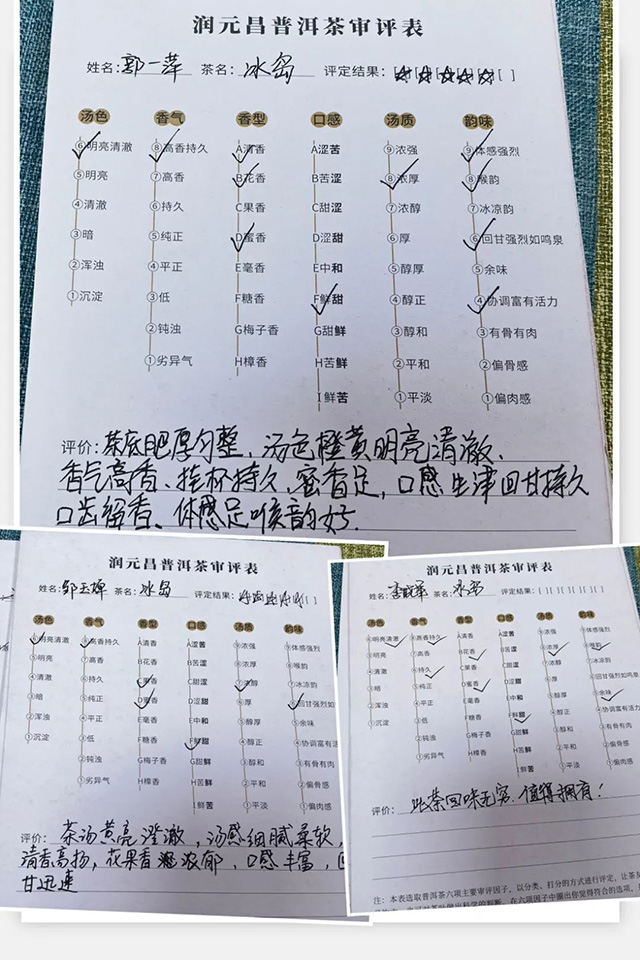 润元昌普洱茶审评表
姓名:郭一萍 茶名:冰岛 评定结果:[☆][☆][☆][☆][☆][ ]
汤色 香气 香型 口感 汤质 韵味
⑥明亮清澈 ⑧高香持久 A清香 A涩苦 ⑨浓强 ⑨体感强烈
⑤明亮 ⑦高香 B花香 B苦涩 ⑧浓厚 ⑧喉韵
④清澈 ⑥持久 C果香 C甜涩 ⑦浓醇 ⑦冰凉韵
③暗 ⑤纯正 D蜜香 D涩甜 ⑥厚 ⑥回甘强烈如鸣泉
②浑浊 ④平正 E毫香 E中和 ⑤醇厚 ⑤余味
①沉淀 ③低 F糖香 F鲜甜 ④醇正 ④协调富有活力
②钝浊 G梅子香 G甜鲜 ③醇和 ③有骨有肉
①劣异气 H樟香 H苦鲜 ②平和 ②偏骨感
I鲜苦 ①平淡 ①偏肉感
评价:茶底肥厚匀整,汤色橙黄明亮清澈.
香气高香、挂杯持久,蜜香足,口感生津回甘持久
口齿留香、体感足喉韵好.
润元昌普洱茶审评表
姓名:邹玉婵 茶名:冰岛 评定结果:
汤色 香气 香型 口感 汤质 韵味
⑥明亮清澈 ⑧高香持久 A清香 A涩苦 ⑨浓强 ⑨体感强烈
⑤明亮 ⑦高香 B花香 B苦涩 ⑧浓厚 ⑧喉韵
④清澈 ⑥持久 C果香 C甜涩 ⑦浓醇 ⑦冰凉韵
③暗 ⑤纯正 D蜜香 D涩甜 ⑥厚 ⑥回甘强烈如
②浑浊 ④平正 E毫香 E中和 ⑤醇厚 ⑤余味
①沉淀 ③低 F糖香 F鲜甜 ④醇正 ④协调富有活
②钝浊 G梅子香 G甜鲜 ③醇和 ③有骨有肉
①劣异气 H樟香 H苦鲜 ②平和 ②偏骨感
I鲜苦 ①平淡 ①偏肉感
评价:茶汤黄亮澄澈,汤感细腻柔软,
清香高扬,花果香浓郁,口感丰富,回
甘迅速
润元昌普洱茶审评表
姓名: 茶名:冰岛 评定结果:[ ][ ][ ][ ][ ][ ]
汤色 香气 香型 口感 汤质 韵味
⑥明亮清澈 ⑧高香持久 A清香 A涩苦 ⑨浓强 ⑨体感强烈
⑤明亮 ⑦高香 B花香 B苦涩 ⑧浓厚 ⑧喉韵
④清澈 ⑥持久 C果香 C甜涩 ⑦浓醇 ⑦冰凉韵
③暗 ⑤纯正 D蜜香 D涩甜 ⑥厚 ⑥回甘强烈如鸣泉
②浑浊 ④平正 E毫香 E中和 ⑤醇厚 ⑤余味
①沉淀 ③低 F糖香 F鲜甜 ④醇正 ④协调富有活力
②钝浊 G梅子香 G甜鲜 ③醇和 ③有骨有肉
①劣异气 H樟香 H苦鲜 ②平和 ②偏骨感
I鲜苦 ①平淡 ①偏肉感
评价:此茶回味无穷.值得拥有!
注:本表选取普洱茶六项主要审评因子,以分类、打分的方式进行评定,让茶
在六项因子中圈出你觉得符合的选项,